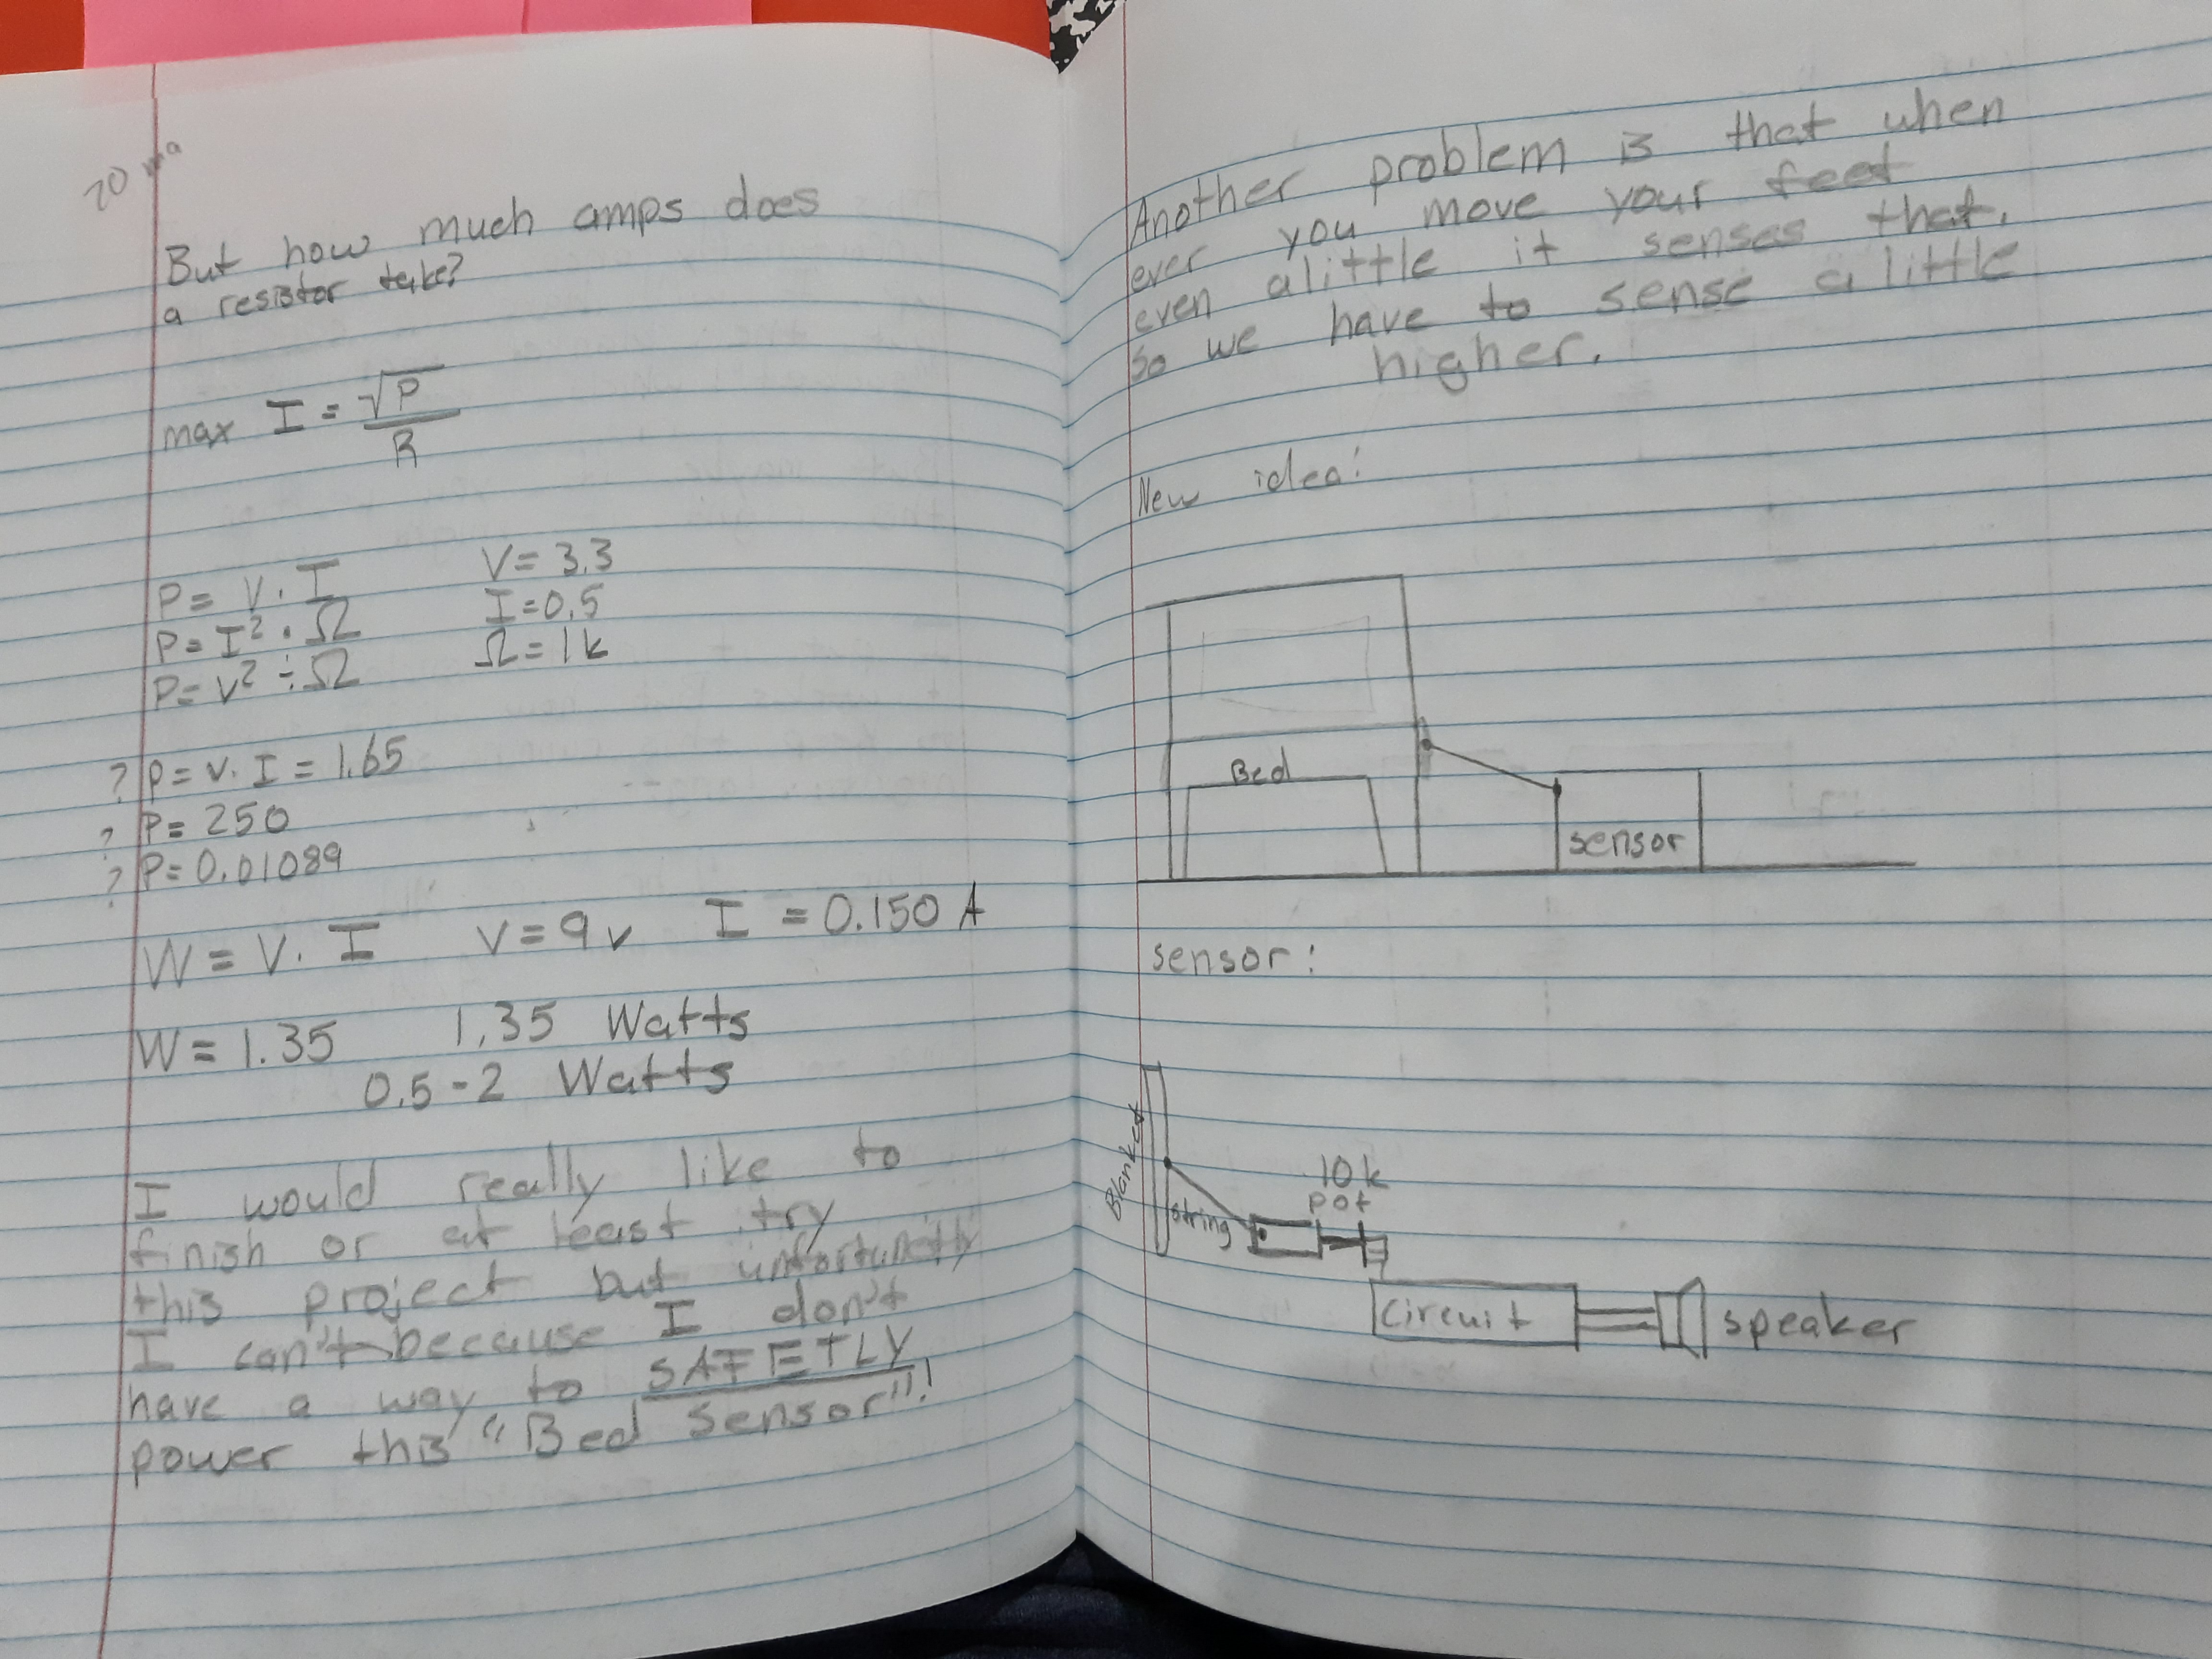 20 ma
But how much amps does
a resistor take?
max I = √P / R
P = V · I    V = 3.3
P = I² · Ω    I = 0.5
P = V² ÷ Ω    Ω = 1k
? P = V · I = 1.65
? P = 250
? P = 0.01089
W = V · I    V = 9v    I = 0.150 A
W = 1.35    1.35 Watts
0.5 - 2 Watts
I would really like to
finish or at least try
this project but unfortunetly
I can't because I don't
have a way to SAFETLY
power this "Bed Sensor"!
Another problem is that when
ever you move your feet
even alittle it senses that.
So we have to sense a little
higher.
New idea:
Bed
sensor
sensor:
Blanket
string
10k
pot
circuit
speaker